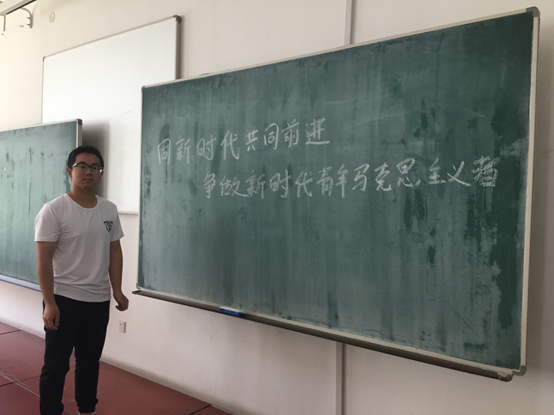 同新时代共同前进
争做新时代青年马克思主义者